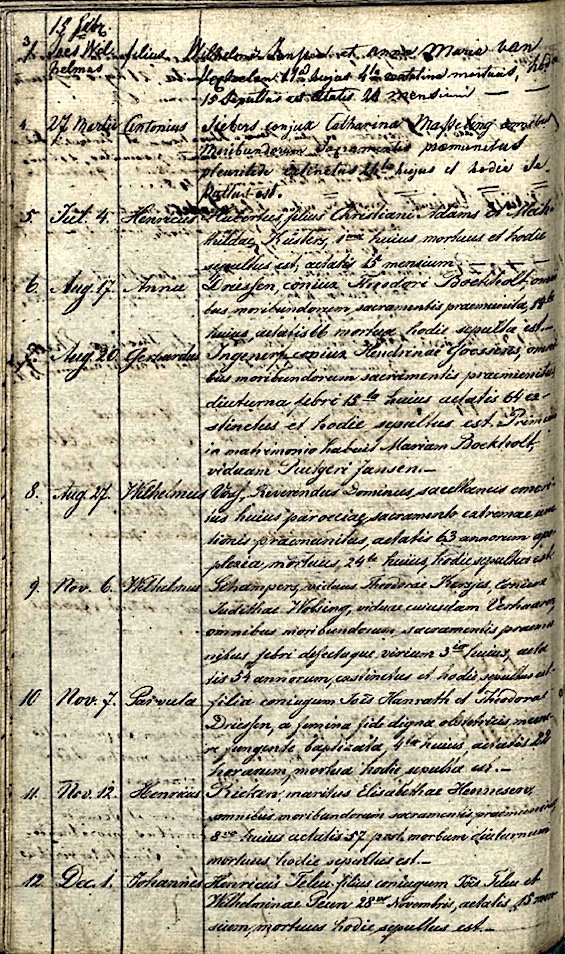 3. 15 Febr.
Joes Wil- filius Wilhelmi et Anna Maria van
helmus hujus mortuus, hodie
15 sepultus est aetatis 24 mensium
4. 27 Martii Antonius Siebers conjux Catharina omnibus
moribundorum Sacramentis praemunitus
pleuritide extinctus hujus et hodie Se-
pultus est.
5. Jul. 4. Henricus Hubertus filius Christiani Adams et Mech-
tildae Küsters, huius mortuus et hodie
sepultus est, aetatis 15 mensium
6. Aug. 17. Anna Driessen, coniux Theodori Bockholt, omni
bus moribundorum sacramentis praemunita, 14ta
huius, aetatis 66 mortua hodie sepulta est.—
7. Aug. 20. Gerhardus coniux Hendrinae Goossens omni
bus moribundorum sacramentis praemunitus
diuturna febri 15ta huius aetatis 64 ex-
stinctus et hodie sepultus est. Primam
in matrimonio habuit Mariam Bockholt,
viduam Rutgeri Jansen.—
8. Aug. 27. Wilhelmus Reverendus Dominus, sacellanus emeri
tus huius parociae, sacramento extremae unc
tionis praemunitus, aetatis 63 annorum apo
plexia, mortuus, 24ta huius, hodie sepultus est.
9. Nov. 6. Wilhelmus Schampers, viduus Theodorae coniux
Judithae viduae cuiusdam
omnibus moribundorum sacramentis praemu
nitus febri defectuque virium 3tia huius, aeta
tis 54 annorum, exstinctus et hodie sepultus est.
10 Nov. 7. Parvula filia coniugum Jois Hanrath et Theodorae
Driessen, a femina fide digna obstetricis mune
re fungente baptizata, 4ta huius, aetatis 22
horarum, mortua hodie sepulta est.—
11. Nov. 12. Henricus maritus Elisabethae Hennesen,
omnibus moribundorum sacramentis praemunitus,
8va huius aetatis 57 post morbum diuturnum
mortuus hodie sepultus est.—
12 Dec. 1. Johannes Henricus Teleu filius coniugum Jois Teleu et
Wilhelminae Peun 28va Novembris, aetatis 15 men
sium, mortuus hodie sepultus est.—